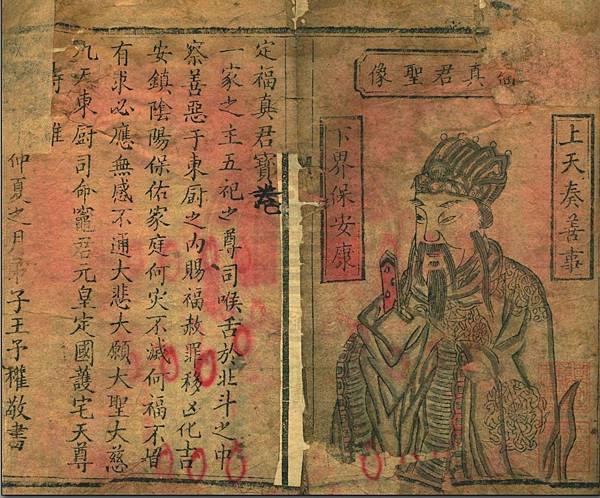 真君聖像
上天奏善事
下界保安康
定福真君寶卷
一家之主五祀之尊司喉舌於北斗之中
察善惡于東厨之内賜福赦罪移凶化吉
安鎮陰陽保佑家庭何灾不滅何福不增
有求必應無感不通大悲大願大聖大慈
九天東厨司命竈君元皇定國護宅天尊
時維
仲夏之月弟子王子權敬書